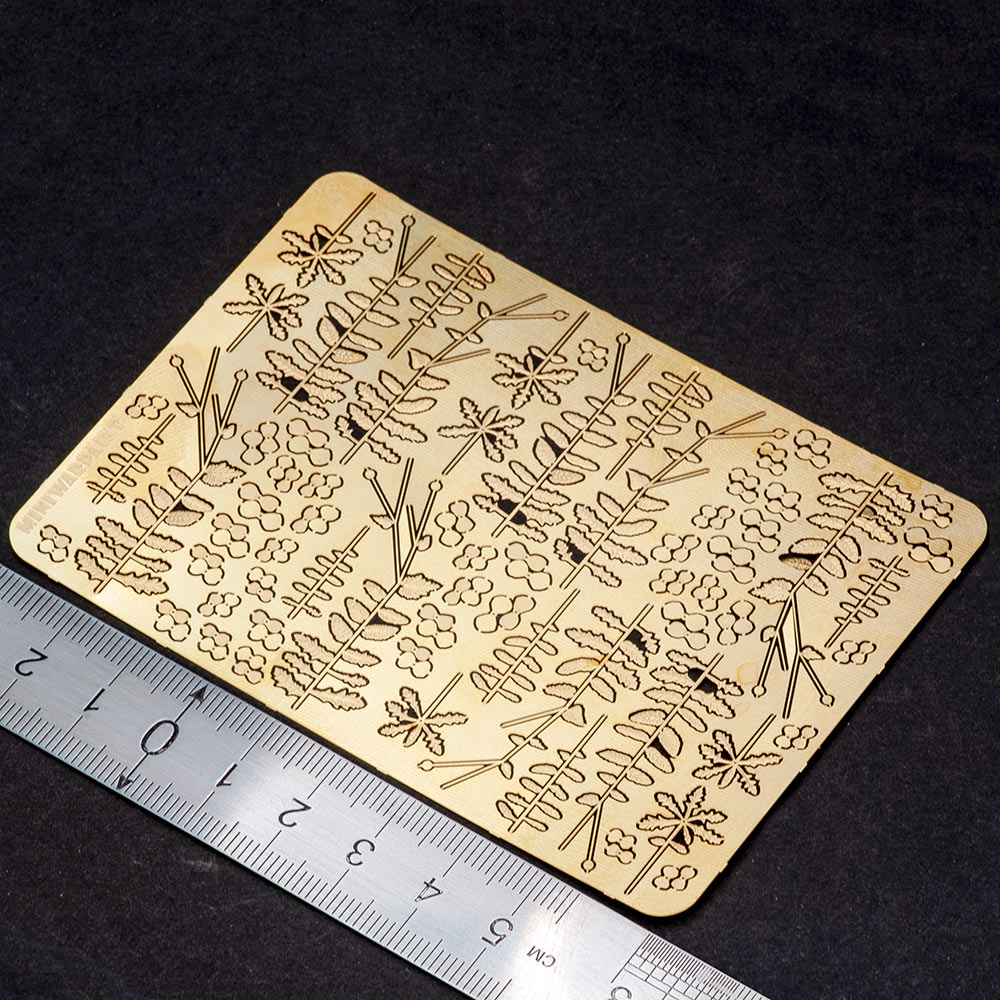 MINIWARPAINT
2 1 0 1 2 3 4 5 CM